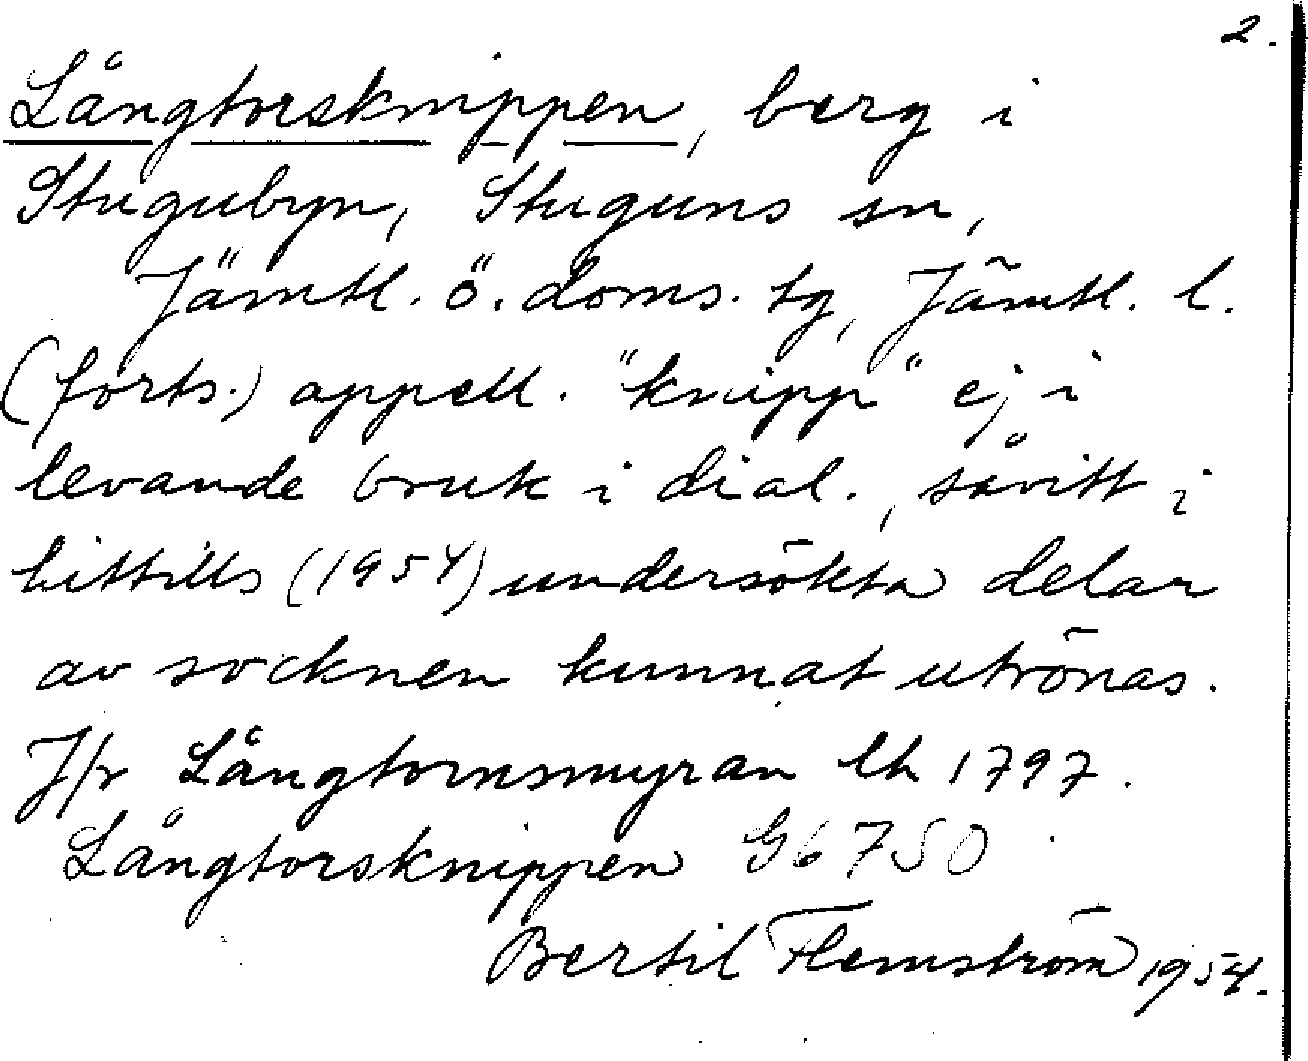 2.
Långtorsknippen, berg i
Stugubyn, Stuguns sn,
Jämtl. ö. doms. tg, Jämtl. l.
(forts.) appell. "knipp" ej i
levande bruk i dial., såvitt i
hittills (1954) undersökta delar
av socknen kunnat utrönas.
Jfr Långtornsmyran lh 1797.
Långtorsknippen G6 7 S O
Bertil Flemström 1954.